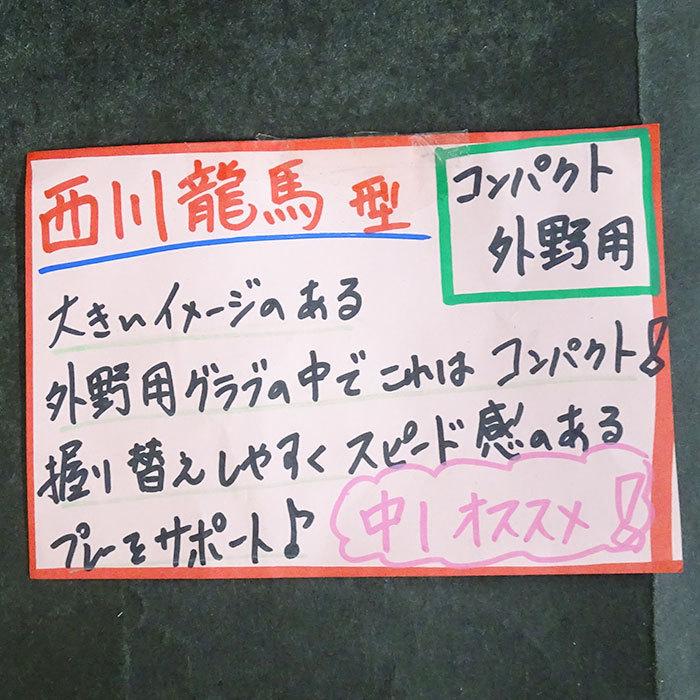 西川龍馬 型
コンパクト
外野用
大きいイメージのある
外野用グラブの中でこれは コンパクト!
握り替えしやすく スピード感のある
プレーをサポート♪
中1オススメ!